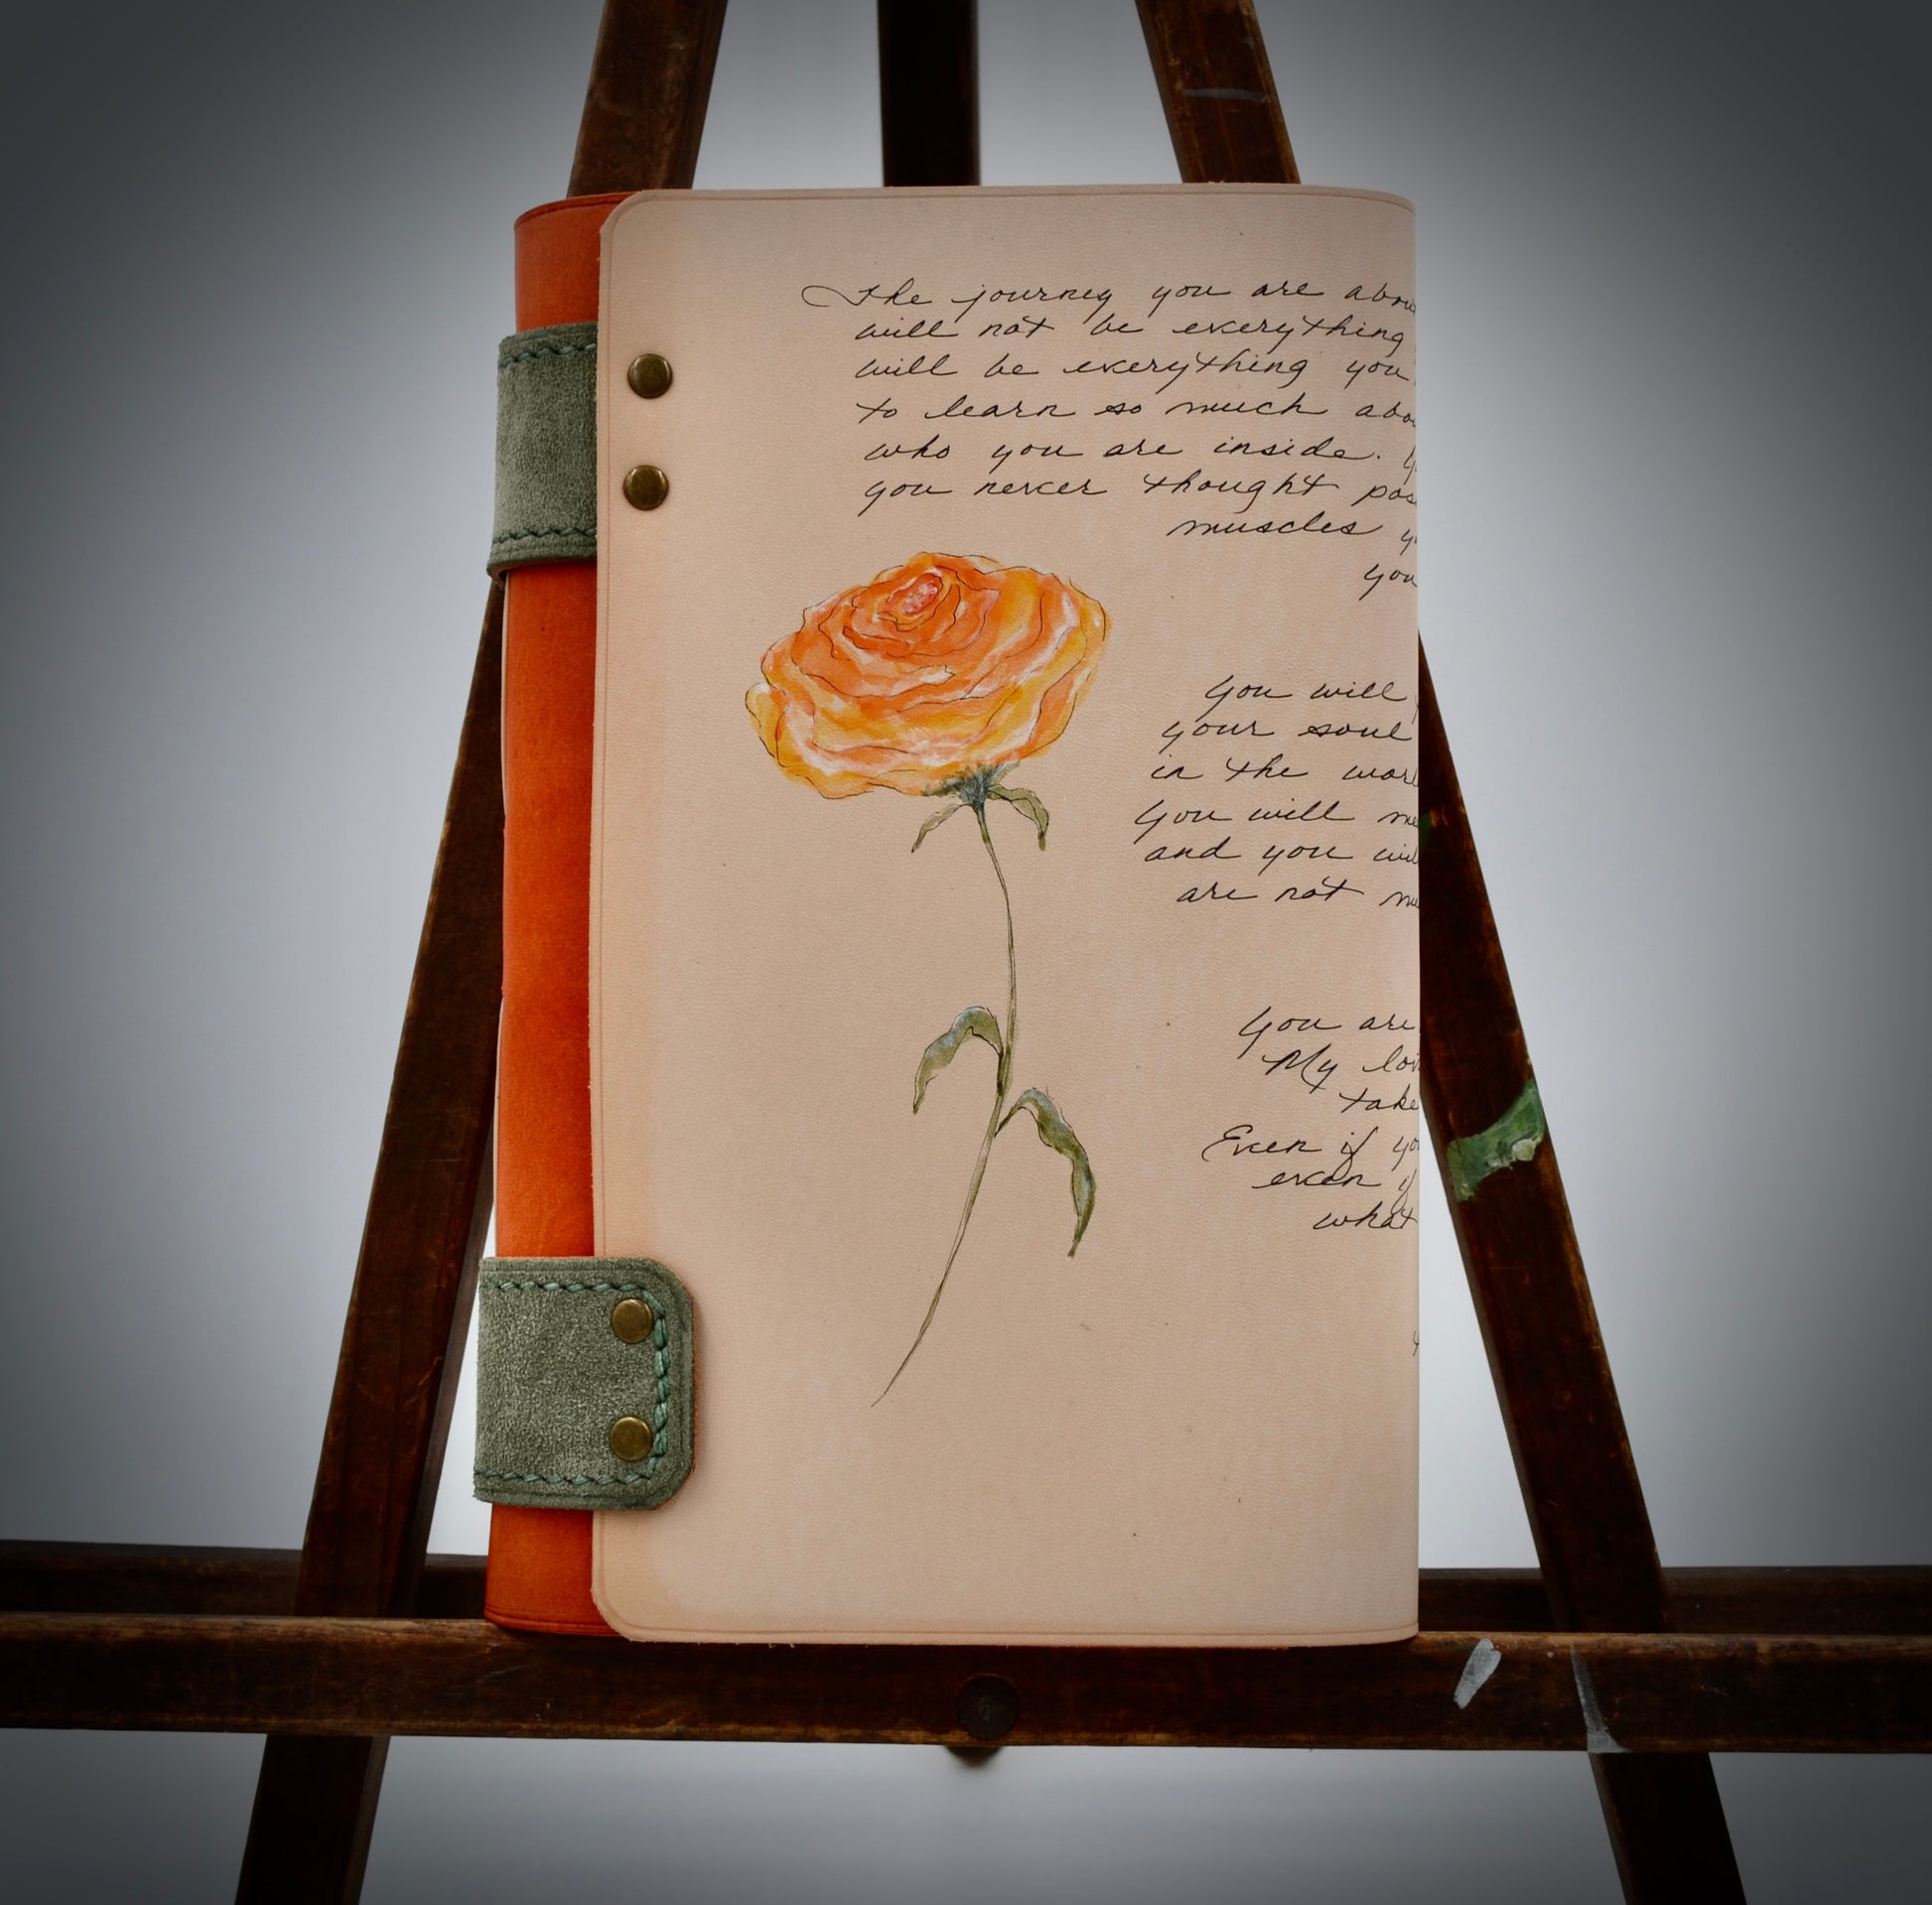 The journey you are abou
will not be everything
will be everything you
to learn so much abo
who you are inside.
you never thought pos
muscles y
you
you will
your soul
in the worl
You will me
and you wil
are not m
You are
My lov
take
Even if yo
even if
what